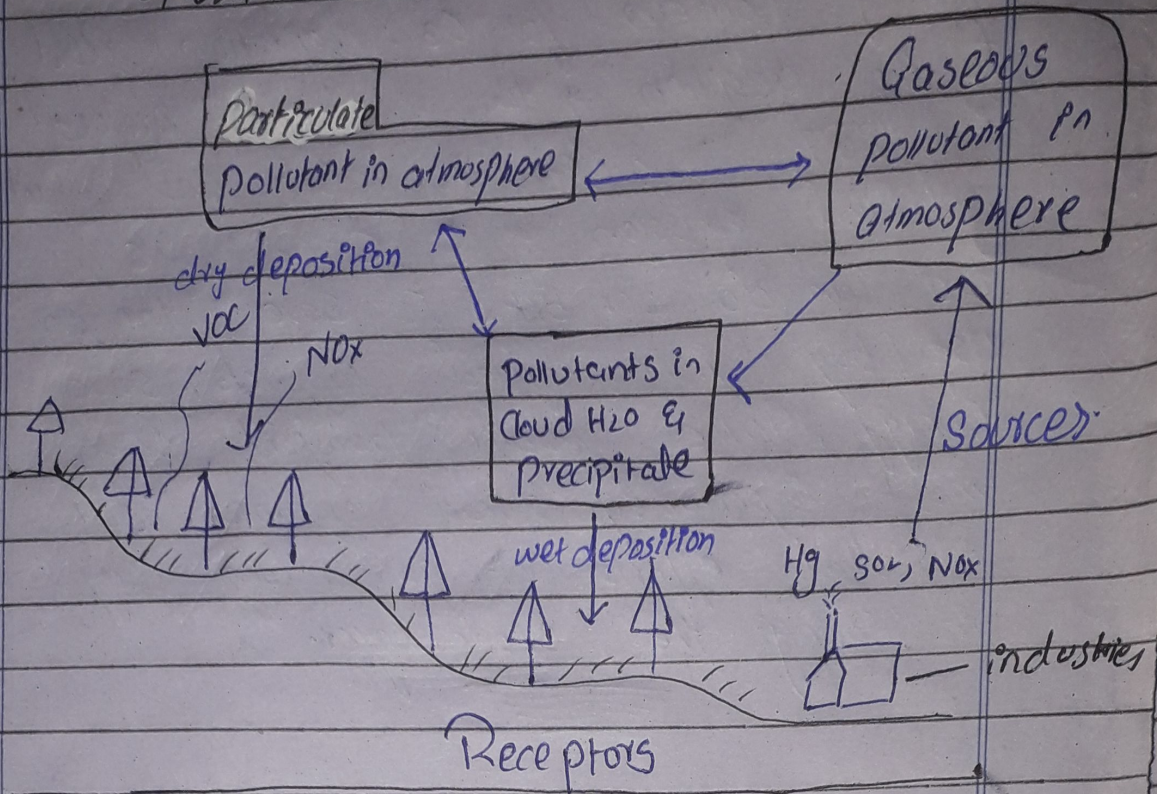 Gaseous
Particulate
pollutant in
pollutant in atmosphere
atmosphere
dry deposition
VOC
NOx
Pollutants in
Cloud H2O &
precipitate
Sources
wet deposition
Hg SO2, NOx
industries
Receptors